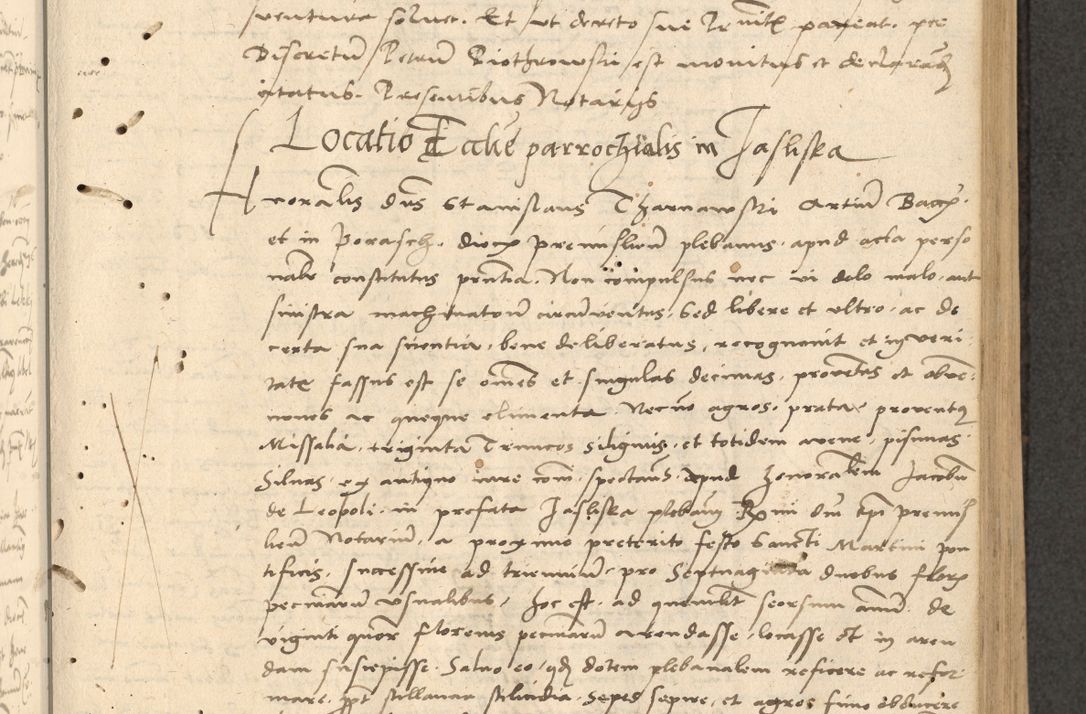 solvet. Et ut decreto sue pareat. per
Discretum Petrum Piothrowski est monitus et
citatus. Presentibus Notariis
Locatio Eccĺie parrochialis in Jasliska
Honoralis dns Stanislaus Tharnawski Artium Bacc.
et in Porasch. dioc premislien plebanus. apud acta perso
nalr constitutus Non compulsus nec vi dolo malo. aut
sinistra machinatone circumventus. Sed libere et ultro. ac de
certa sua scientia. bene deliberatus, recognovit et in veri
tate fassus est se omes et singulas decimas. proventus et obve:
niones ac queque elimenta Necno agros. prata. proventq
Missalia. triginta Truncos siliginis. et totidem avene. pisunas
Silvas. ex antiquo iure spectans apud honoralem Jacobu
de Leopoli. in prefata Jasliska plebanu Rmi dni Epi premis
lien Notarium, a proximo preterito festo Sancti Martini pon
tificis. successive ad triennium. pro Septuaginta duobus flor
pecuniaru usualibus, hoc est, ad quemlit seorsum annu. de
viginti quor florenis pecuniaru arendasse. locasse et in aren
dam suscepisse. Salvo eo, qd dotem plebanalem reficere ac refor
mare, stillicidia. Sepes sepire, et agros fimo obducere